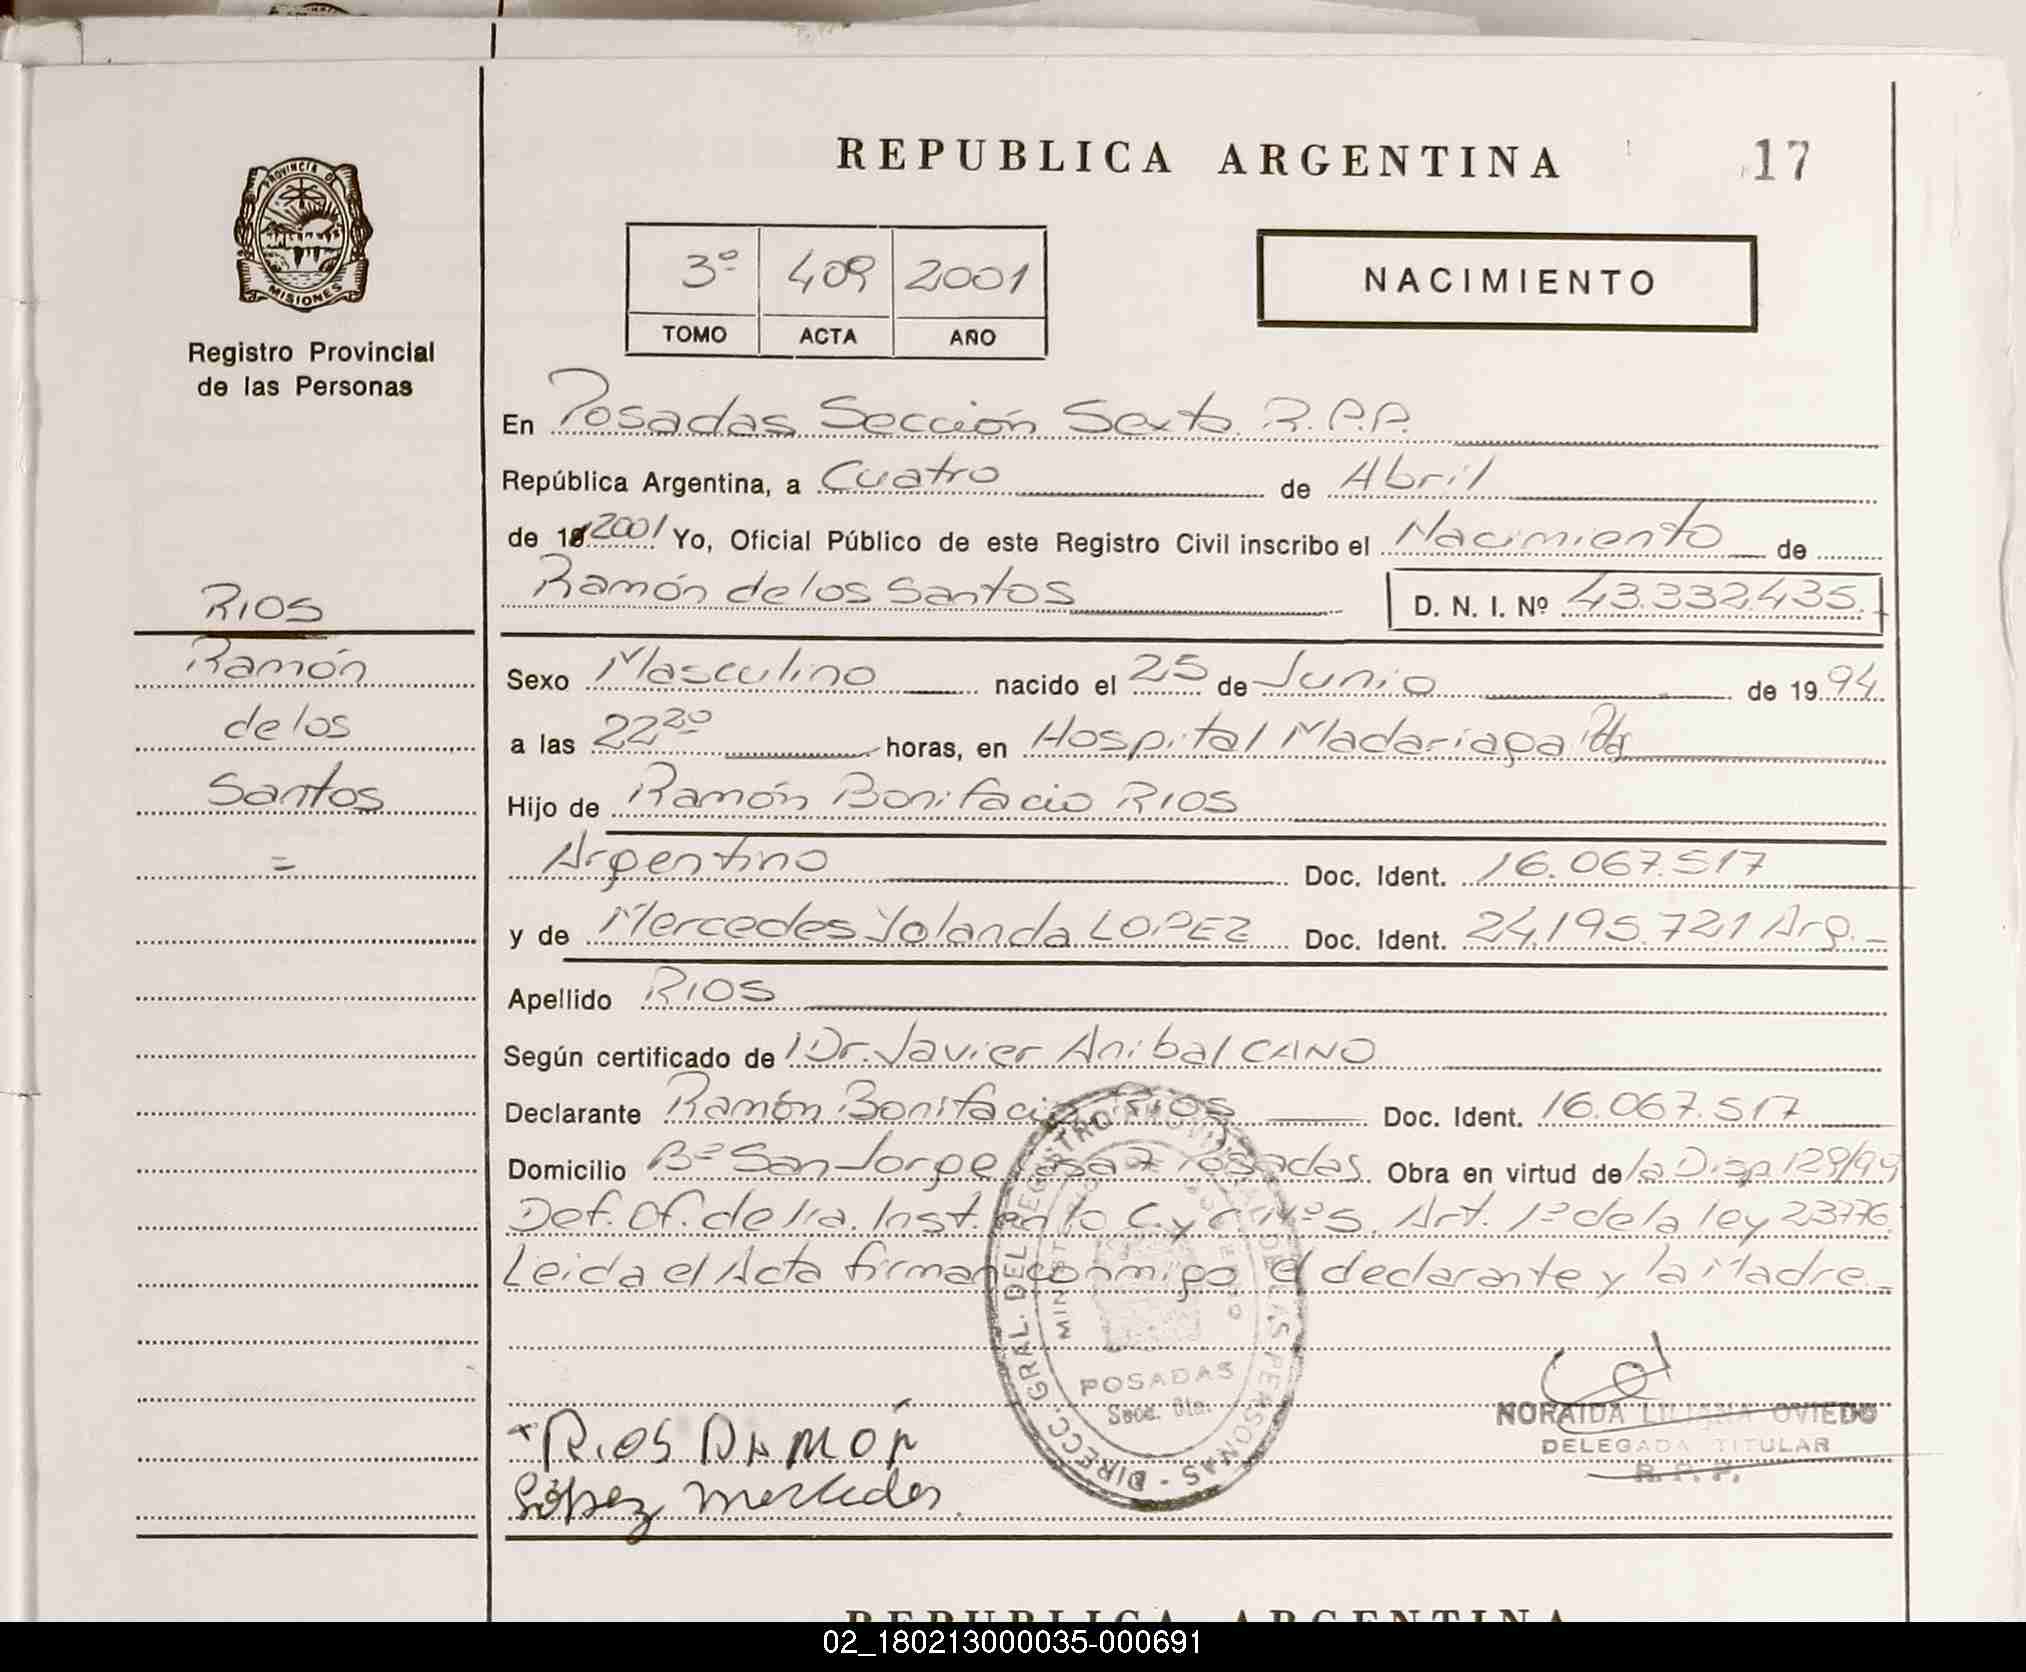 REPUBLICA ARGENTINA
17
PROVINCIA DE
MISIONES
Registro Provincial
de las Personas
3º 409 2001
TOMO ACTA AÑO
NACIMIENTO
En Posadas Sección Sexta R.P.P.
República Argentina, a Cuatro de Abril
de 19 2001 Yo, Oficial Público de este Registro Civil inscribo el Nacimiento de
Ramón de los Santos D. N. I. Nº 43.332.435.
RIOS
Ramón
de los
Santos
=
Sexo Masculino nacido el 25 de Junio de 1994
a las 22 20 horas, en Hospital Madariaga Pdas
Hijo de Ramón Bonifacio RIOS
Argentino Doc. Ident. 16.067.517
y de Mercedes Yolanda LOPEZ Doc. Ident. 24.195.721 Arg.
Apellido RIOS
Según certificado de Dr. Javier Anibal CANO
Declarante Ramón Bonifacio RIOS Doc. Ident. 16.067.517
Domicilio Bº San Jorge casa 7 Posadas. Obra en virtud de la Disp 129/99
Def. Of. de 1ra. Inst. en lo C. y C. Nº 5. Art. 1º de la ley 23776.
Leida el Acta firman conmigo el declarante y la Madre
DIRECC. GRAL. DEL REGISTRO PROVINCIAL DE LAS PERSONAS
MINISTERIO DE GOBIERNO
POSADAS
Secc. 6ta.
RIOS RAMÓN
López Mercedes
NORAIDA LILIANA OVIEDO
DELEGADA TITULAR
R. P. P.
REPUBLICA ARGENTINA
02_180213000035-000691